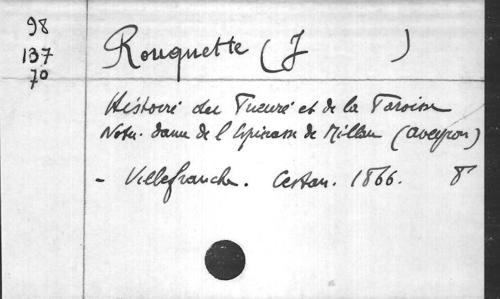 98
137
70
Rouquette (J )
Histoire du Prieuré et de la Paroisse
Notre-Dame de l'Espinasse de Millau (Aveyron)
- Villefranche. Cestan. 1866. 8°